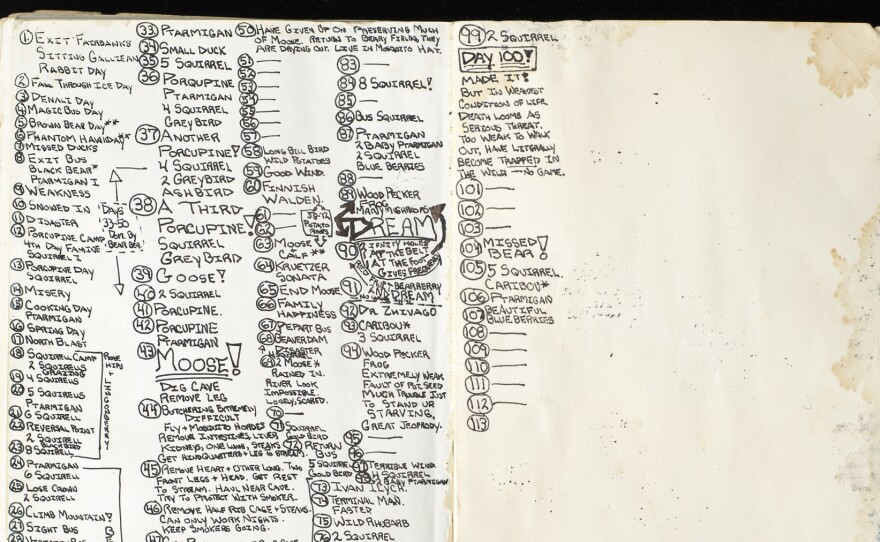 ① EXIT FAIRBANKS
SITTING GALLIEN
RABBIT DAY
② FALL THROUGH ICE DAY
③ DENALI DAY
④ MAGIC BUS DAY
⑤ BROWN BEAR DAY**
⑥ PHANTOM HAWKDAY**
⑦ MISSED DUCKS
⑧ EXIT BUS
BLACK BEAR*
PTARMIGAN I
⑨ WEAKNESS
⑩ SNOWED IN
⑪ DISASTER
⑫ PORCUPINE CAMP
4TH DAY FAMINE
SQUIRREL I
⑬ PORCUPINE DAY
SQUIRREL
⑭ MISERY
⑮ COOKING DAY
PTARMIGAN
⑯ SPRING DAY
⑰ NORTH BLAST
⑱ SQUIRREL CAMP
2 SQUIRRELS
GRAYLING
⑲ 4 SQUIRRELS
⑳ 5 SQUIRRELS
PTARMIGAN
㉑ 6 SQUIRREL
㉒ REVERSAL POINT
2 SQUIRRELL
BLACKBIRD
㉓ 8 SQUIRREL
ROSE
HIPS
+
LINGONBERRY
㉔ PTARMIGAN
6 SQUIRREL
㉕ LOSE CROWN
2 SQUIRREL
㉖ CLIMB MOUNTAIN!
㉗ SIGHT BUS
DAYS
33-50
DONE BY
BEAR BER.
㉝ PTARMIGAN
㉞ SMALL DUCK
㉟ 5 SQUIRREL
㊱ PORQUPINE
PTARMIGAN
4 SQUIRREL
GREYBIRD
㊲ ANOTHER
PORCUPINE!
4 SQUIRREL
2 GREYBIRD
ASHBIRD
㊳ A THIRD
PORCUPINE!
SQUIRREL
GREYBIRD
㊴ GOOSE!
㊵ 2 SQUIRREL
㊶ PORCUPINE.
㊷ PORCUPINE
PTARMIGAN
㊸ MOOSE!
DIG CAVE
REMOVE LEG
㊹ BUTCHERING EXTREMELY
DIFFICULT
FLY + MOSQUITO HORDES
REMOVE INTESTINES, LIVER
KIDNEYS, ONE LUNG, STEAKS
GET HINDQUARTERS + LEG TO STREAM.
㊺ REMOVE HEART + OTHER LUNG. TWO
FRONT LEGS + HEAD. GET REST
TO STREAM. HAUL NEAR CAVE.
TRY TO PROTECT WITH SMOKER.
㊻ REMOVE HALF RIB CAGE + STEAKS.
CAN ONLY WORK NIGHTS.
KEEP SMOKERS GOING.
㊼
㊿ HAVE GIVEN UP ON PRESERVING MUCH
OF MOOSE. RETURN TO BEARY FIELDS. THEY
ARE DRYING OUT. LIVE IN MOSQUITO HAT.
(51) —
(52) —
(53) —
(54) —
(55) —
(56) —
(57) —
(58) LONG BILL BIRD
WILD POTATOES
(59) GOOD WIND.
(60) FINNISH
WALDEN.
(61) —
(62) —
(63) MOOSE
CALF**
(64) KRUETZER
SONATA
(65) END MOOSE
(66) FAMILY
HAPPINESS
(67) DEPART BUS
(68) BEAVERDAM
DISASTER
(69) 2 MOOSE*
RAINED IN.
RIVER LOOK
IMPOSSIBLE.
LONELY, SCARED.
(70) —
(71) SQUIRREL
GOLD BIRD
(72) RETURN
BUS
5 SQUIRREL
GOLD BIRD
(73) IVAN ILYCH.
(74) TERMINAL MAN.
FASTER
(75) WILD RHUBARB
(76) 2 SQUIRREL
(83) —
(84) 8 SQUIRREL!
(85) —
(86) BUS SQUIRREL
(87) PTARMIGAN
2 BABY PTARMIGAN
2 SQUIRREL
BLUE BERRIES
(88) —
(89) WOOD PECKER
FROG
MANY MUSHROOMS
DREAM
(90)
AT THE BELT
AT THE FOOT
(91)
DREAM
(92) DR. ZHIVAGO
(93) CARIBOU*
3 SQUIRREL
(94) WOOD PECKER
FROG
EXTREMELY WEAK
FAULT OF POT. SEED
MUCH TROUBLE JUST
TO STAND UP
STARVING,
GREAT JEOPARDY.
(95) —
(96) —
(97) TERRIBLE WIND.
4 SQUIRREL
(98) 2 BABY PTARMIGAN
(99) 2 SQUIRREL
DAY 100!
MADE IT!
BUT IN WEAKEST
CONDITION OF LIFE.
DEATH LOOMS AS
SERIOUS THREAT.
TOO WEAK TO WALK
OUT, HAVE LITERALLY
BECOME TRAPPED IN
THE WILD — NO GAME.
(101) —
(102) —
(103) —
(104) MISSED
BEAR!
(105) 5 SQUIRREL.
CARIBOU*
(106) PTARMIGAN
(107) BEAUTIFUL
BLUE BERRIES
(108) —
(109) —
(110) —
(111) —
(112) —
(113)